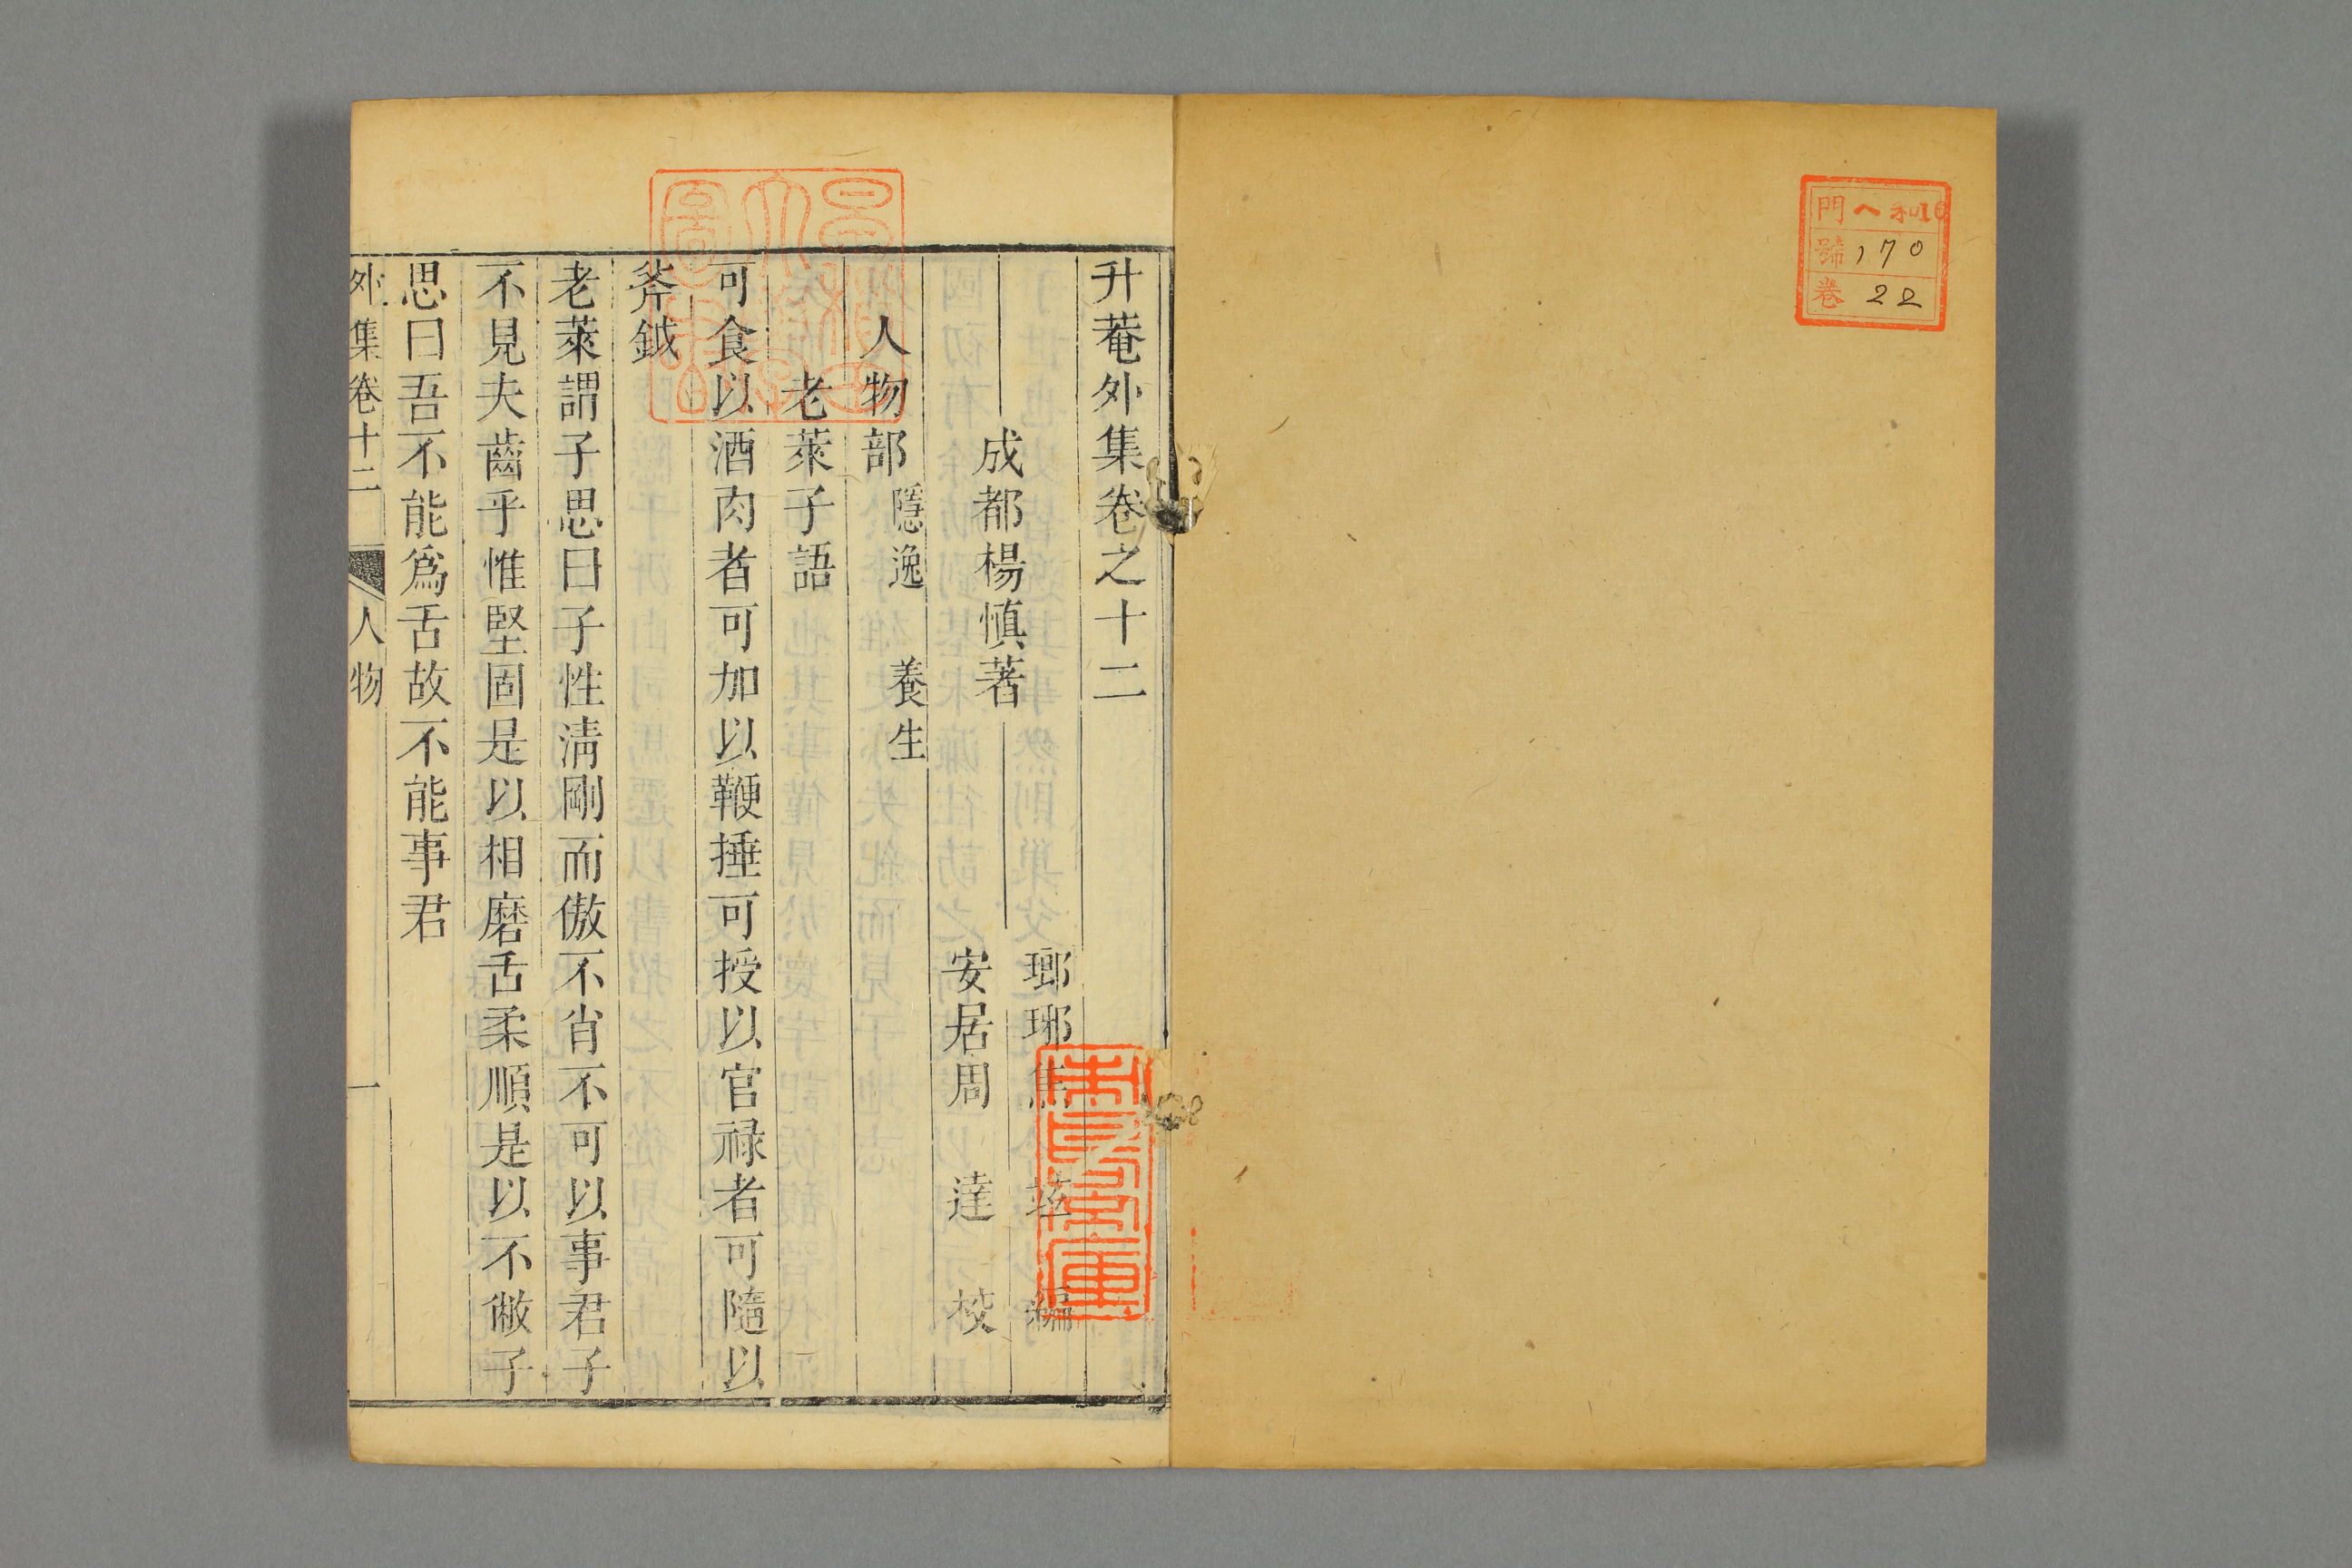 門 ヘ和16
號 170
卷 22
升菴外集卷之十二
瑯琊焦 竑 編
成都楊慎著
安居周 達 校
人物部 隱逸 養生
老萊子語
可食以酒肉者可加以鞭捶可授以官禄者可隨以
斧鉞
老萊謂子思曰子性清剛而傲不肖不可以事君子
不見夫齒乎惟堅固是以相磨舌柔順是以不敝子
思曰吾不能爲舌故不能事君
外集卷十二 人物 一